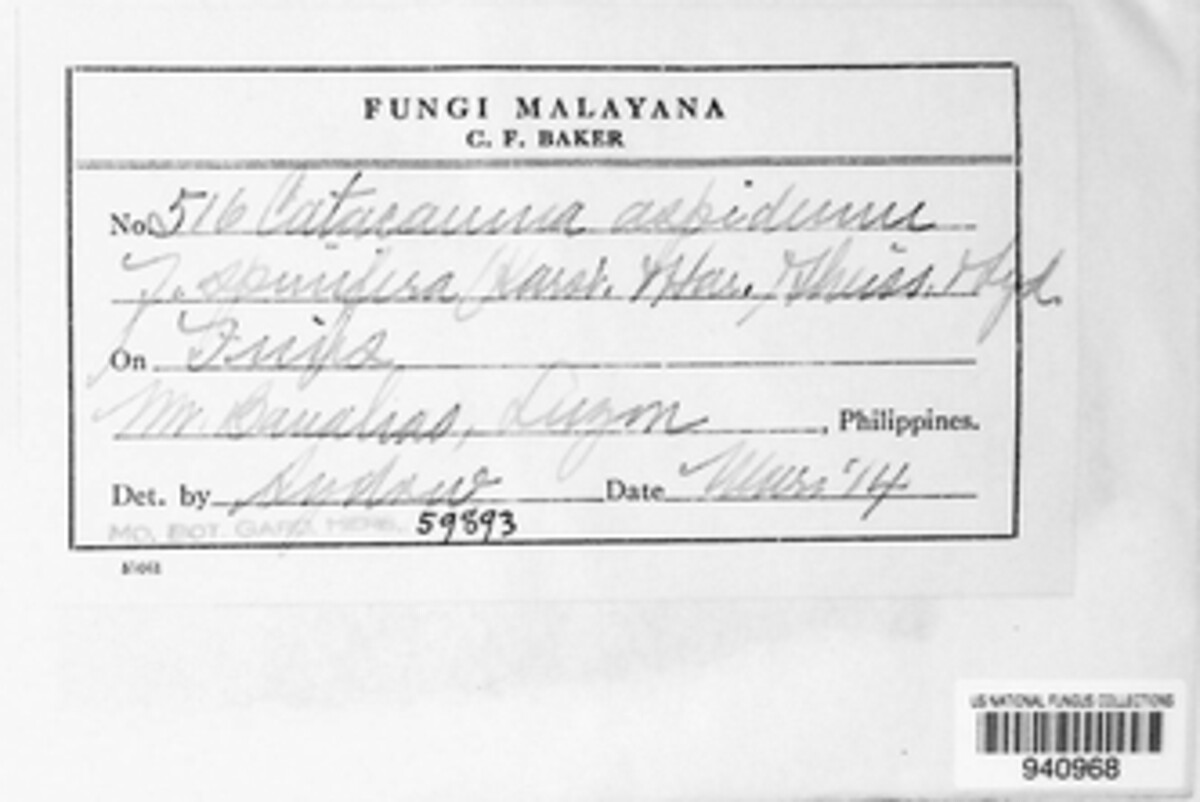 FUNGI MALAYANA
C. F. BAKER
No. 516 Catacauma aspideum
f. spinifera (Karst. & Har.) Theiss. & Syd.
On Ficus
Mt. Banahao, Luzon, Philippines.
Det. by Sydow Date '14
MO. BOT. GARD. HERB. 59893
US NATIONAL FUNGUS COLLECTIONS
940968